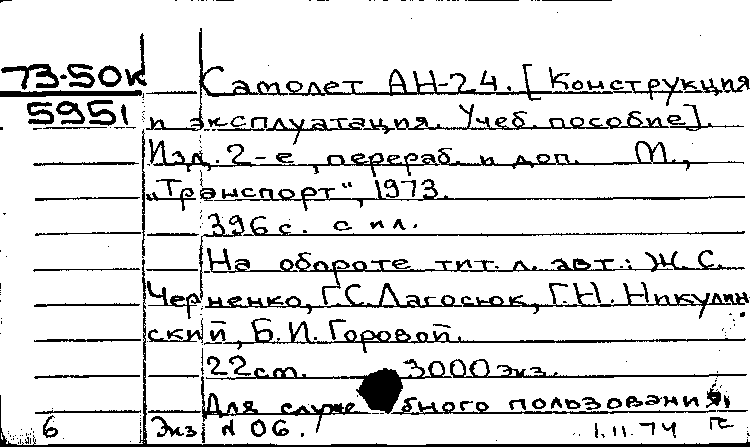 73-50к Самолет АН-24. [Конструкция
5951 и эксплуатация. Учеб. пособие].
Изд. 2-е, перераб. и доп. М.,
„Транспорт", 1973.
396 с. с ил.
На обороте тит. л. авт.: Ж. С.
Черненко, Г. С. Лагосюк, Г. Н. Никулин
ский, Б. И. Горовой.
22 см. 3000 экз.
Для служебного пользования
6 Экз N 06. 1.11.74